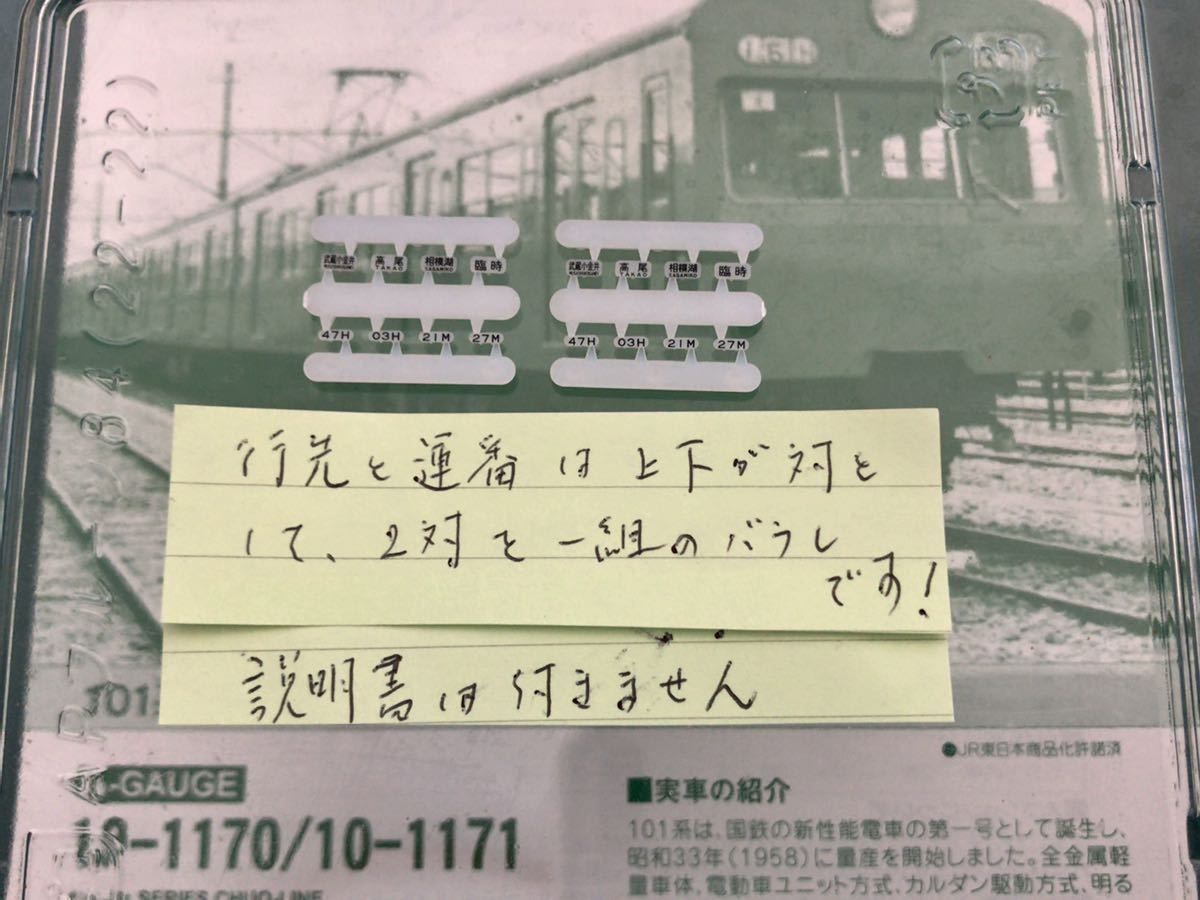 151
PET
(22-22)
84
武蔵小金井 高尾 相模湖 臨時
TAKAO SAGAMIKO
47H 03H 21M 27M
武蔵小金井 高尾 相模湖 臨時
TAKAO SAGAMIKO
47H 03H 21M 27M
行先と運番は上下が対と
して、2対を一組のバラし
です!
説明書は付きません
101
JR東日本商品化許諾済
-GAUGE
10-1170/10-1171
SERIES CHUO-LINE
■実車の紹介
101系は、国鉄の新性能電車の第一号として誕生し、
昭和33年(1958)に量産を開始しました。全金属軽
量車体、電動車ユニット方式、カルダン駆動方式、明る